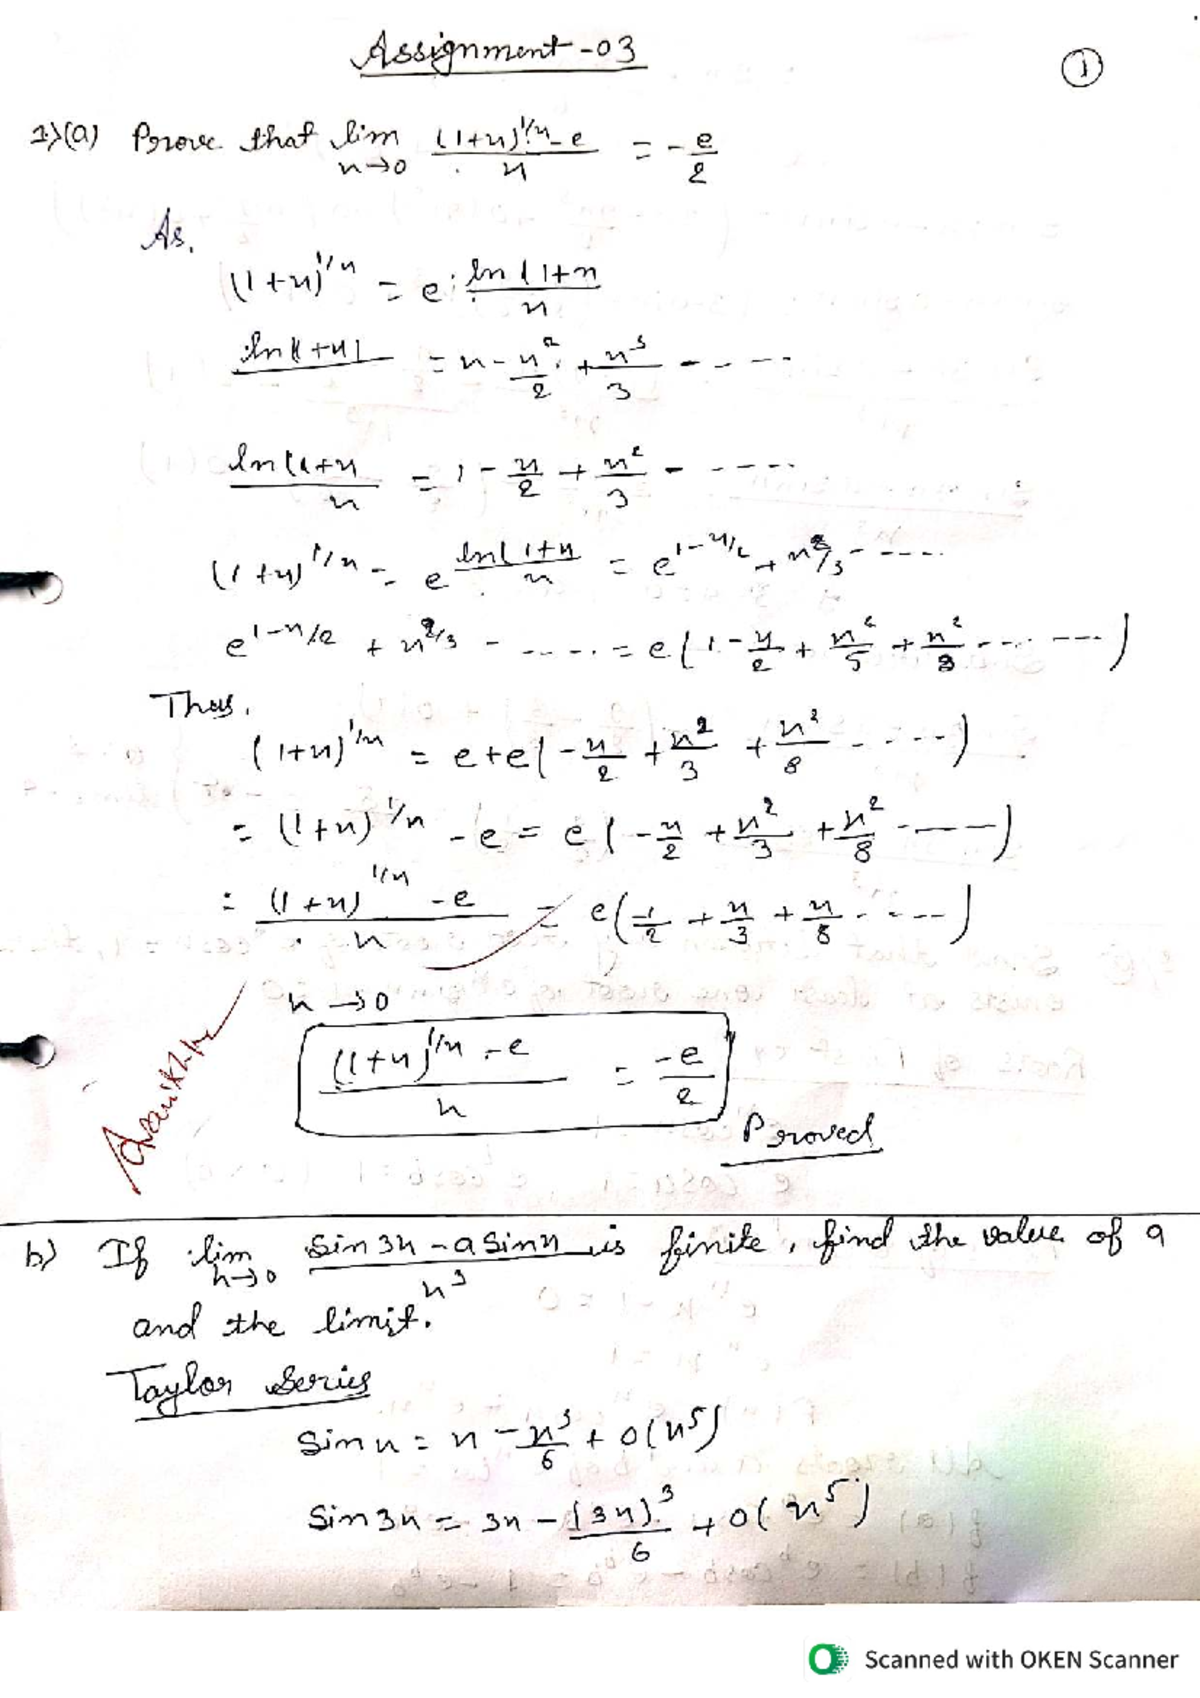 Assignment-03
1
1>(a) Prove that lim n→0 ((1+n)^1/n - e)/n = -e/2
As,
(1+n)^1/n = e ln(1+n/n
ln(1+n) = n - n²/2 + n³/3 - - - --
ln(1+n/n = 1 - n/2 + n²/3 - - ----
(1+n)^1/n = e ln(1+n/n = e^1-n/2 + n²/3 - ----
e^1-n/2 + n²/3 - ..... = e(1 - n/2 + n²/5 + n²/8 ... ---)
Thus,
(1+n)^1/n = e+e(-n/2 + n²/3 + n²/8 - - --)
= (1+n)^1/n - e = e(-n/2 + n²/3 + n²/8 ----)
= ((1+n)^1/n - e)/n = e(-1/2 + n/3 + n/8 - ---)
n→0
((1+n)^1/n - e)/n = -e/2
Proved
b) If lim n→0 (sin3n - a sinn)/n³ is finite, find the value of a
and the limit.
Taylor Series
Sin n = n - n³/6 + O(n⁵)
Sin3n = 3n - (3n)³/6 + O(n⁵)
Scanned with OKEN Scanner